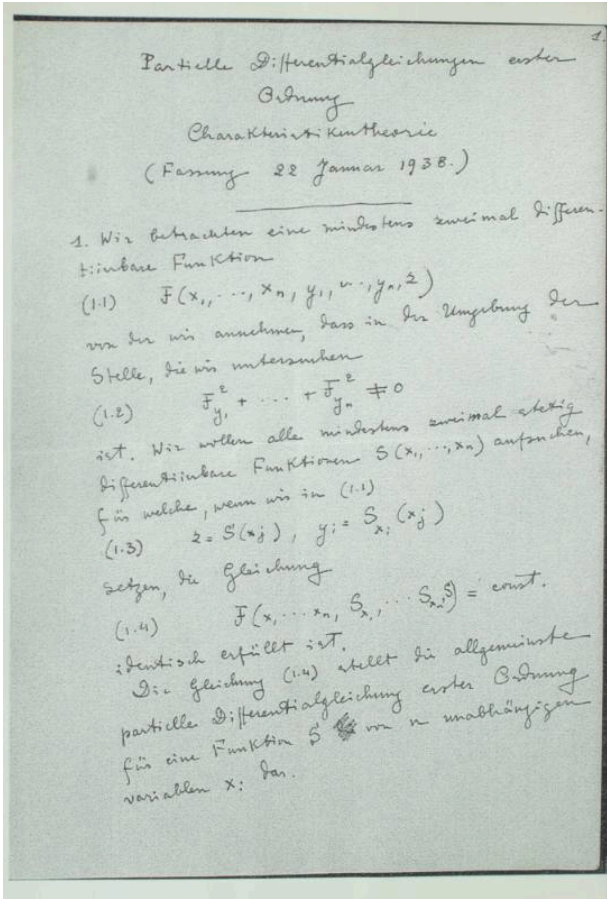 1.
Partielle Differentialgleichungen erster
Ordnung
Charakteristikentheorie
(Fassung 22 Januar 1938.)
1. Wir betrachten eine mindestens zweimal differen-
tiirbare Funktion
(1.1) F(x₁, ..., xₙ, y₁, ..., yₙ, z)
von der wir annehmen, dass in der Umgebung der
Stelle, die wir untersuchen
(1.2) F²_{y₁} + ... + F²_{yₙ} ≠ 0
ist. Wir wollen alle mindestens zweimal stetig
differentiirbare Funktionen S(x₁, ..., xₙ) aufsuchen,
für welche, wenn wir in (1.1)
(1.3) z = S(xⱼ), yᵢ = S_{xᵢ}(xⱼ)
setzen, die Gleichung
(1.4) F(x₁ ... xₙ, S_{x₁}, ... S_{xₙ}, S) = const.
identisch erfüllt ist.
Die Gleichung (1.4) stellt die allgemeinste
partielle Differentialgleichung erster Ordnung
für eine Funktion S von n unabhängigen
variablen xᵢ dar.